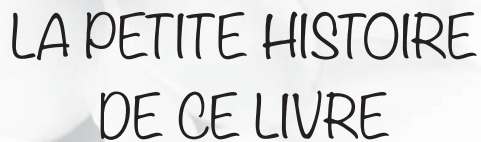 LA PETITE HISTOIRE
DE CE LIVRE